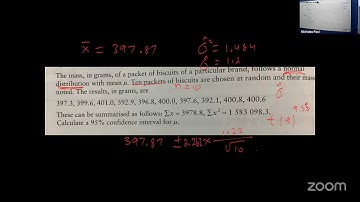 x̄ = 397.87
σ̂² = 1.484
The mass, in grams, of a packet of biscuits of a particular brand, follows a normal
distribution with mean μ. Ten packets of biscuits are chosen at random and their mass
noted. The results, in grams, are
n = 10
397.3, 399.6, 401.0, 392.9, 396.8, 400.0, 397.6, 392.1, 400.8, 400.6
These can be summarised as follows: ∑x = 3978.8, ∑x² = 1 583 098.3.
Calculate a 95% confidence interval for μ.
t(9)
397.87 ± 2.262 ×
√10
zoom